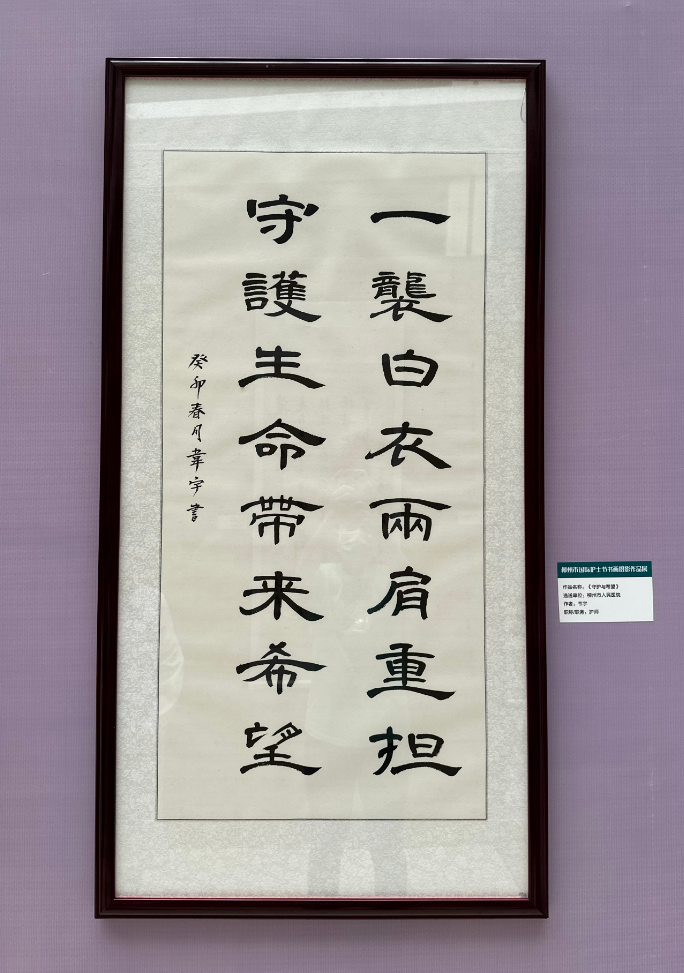 一襲白衣兩肩重担
守護生命帶来希望
癸卯春月韋宇書
柳州市国际护士节书画摄影作品展
作品名称：《守护与希望》
选送单位：柳州市人民医院
作者：韦宇
职称/职务：护师